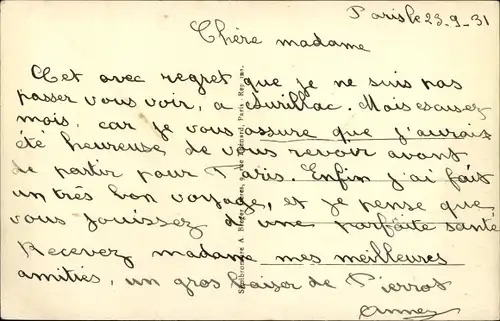 Paris le 23-9-31
Chère madame
Cet avec regret que je ne suis pas
passer vous voir, a aurillac. Mais escusez
mois, car je vous assure que j'aurais
été heureuse de vous revoir avant
de partir pour Paris. Enfin j'ai fait
un très bon voyage, et je pense que
vous jouissez d'une parfaite santé
Recevez madame mes meilleures
amitiés, un gros baiser de Pierrot